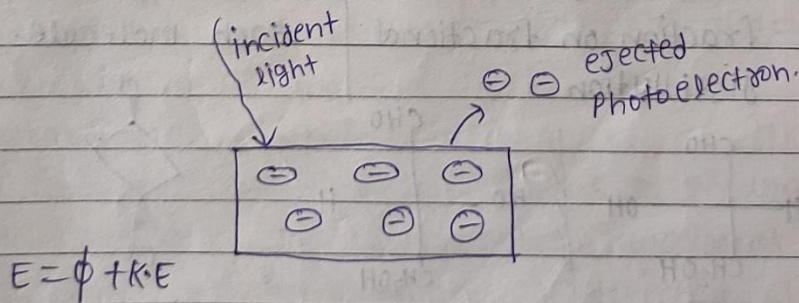 incident
light
ejected
Photoelectron.
⊖ ⊖
⊖ ⊖ ⊖
⊖ ⊖ ⊖
E = ϕ + K.E